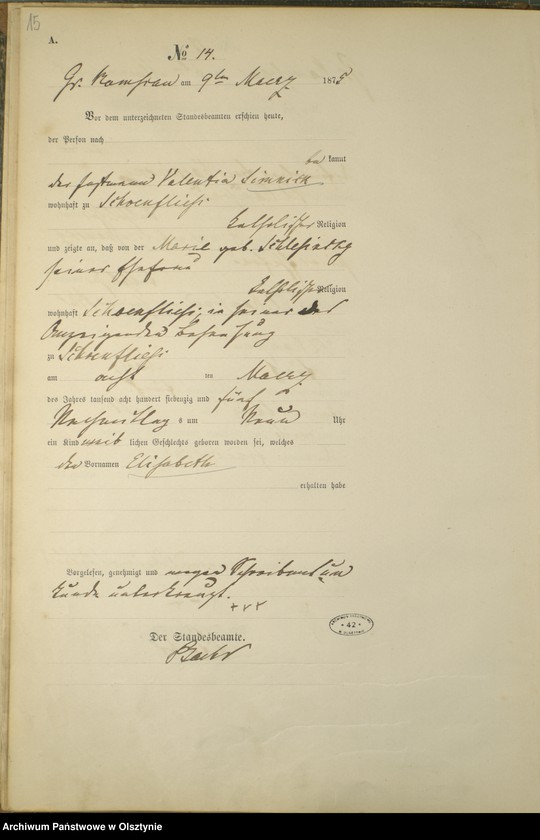 15
A.
No 14.
Gr. Ramsau am 9ten Maerz 1875
Vor dem unterzeichneten Standesbeamten erschien heute,
der Person nach
be kannt
der Valentin Simnick
wohnhaft zu Schoenfliess
katholischer Religion
und zeigte an, daß von der Marie geb.
seiner Ehefrau
katholischer Religion
wohnhaft Schoenfliess, in seiner des
Anzeigenden Behausung
zu Schoenfliess
am acht ten Maerz
des Jahres tausend acht hundert siebenzig und fünf
Nachmittag s um Neun Uhr
ein Kind weib lichen Geschlechts geboren worden sei, welches
den Vornamen Elisabeth
erhalten habe
Vorgelesen, genehmigt und wegen Schreibensun
kunde unterkreuzt.
+++
Der Standesbeamte.
42
Archiwum Państwowe w Olsztynie